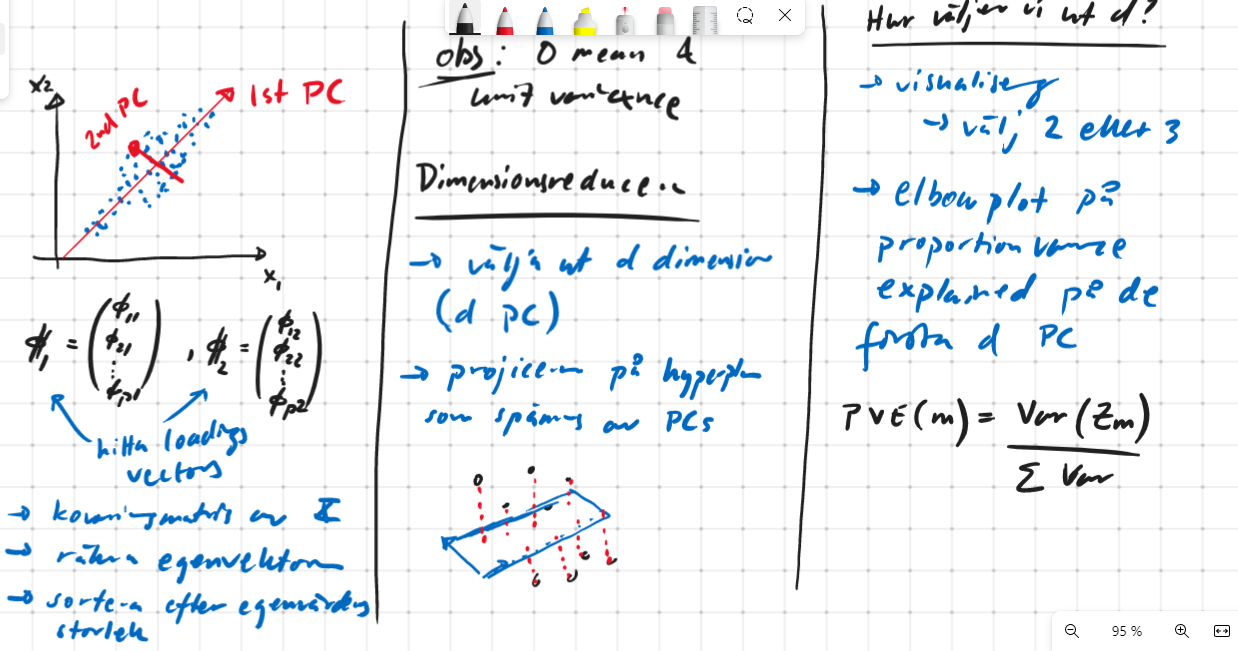 x2
2nd PC
1st PC
x1
ϕ1 = (ϕ11 ϕ21 ⋮ ϕp1) , ϕ2 = (ϕ12 ϕ22 ⋮ ϕp2)
hitta loadings
vectors
→ kovariansmatris av X
→ räkna egenvektorn
→ sortera efter egenvärdens
storlek
obs: 0 mean &
unit variance
Dimensionsreducer..
→ välja ut d dimension
(d PC)
→ projicera på hyperplan
som spänns av PCs
Hur väljer vi ut d?
→ visualisering
→ välj 2 eller 3
→ elbow plot på
proportion variance
explained på de
första d PC
PVE(m) = Var(Zm)
Σ Var
95 %